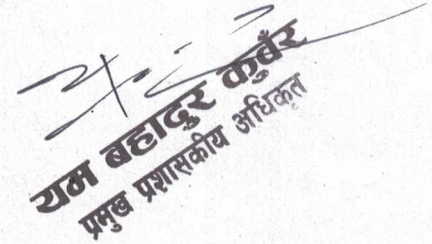 यम बहादुर कुवँर
प्रमुख प्रशासकीय अधिकृत